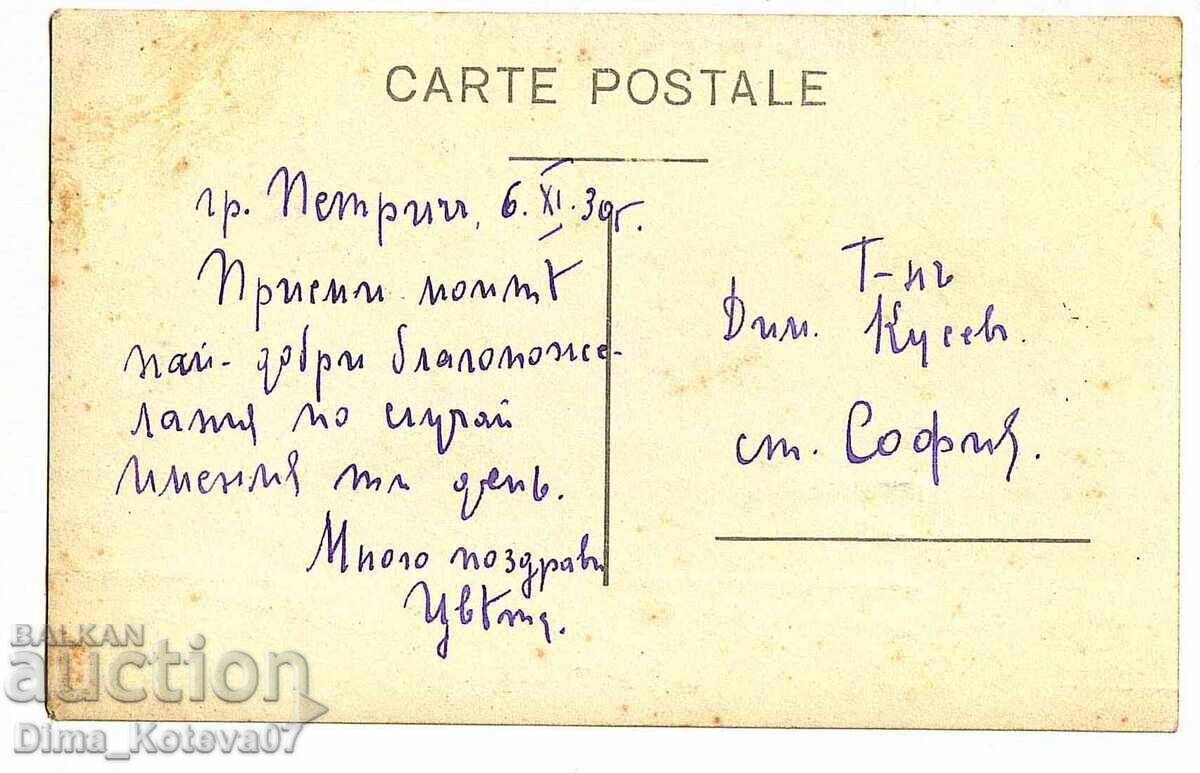 CARTE POSTALE
гр. Петрич, 6.XI.30 г.
Приеми моитѣ
най-добри благопоже-
лания по случай
именния ти день.
Много поздрави
Цвѣтя.
Г-нъ
Дим. Кусевъ.
ст. София.
BALKAN
auction
Dima_Koteva07